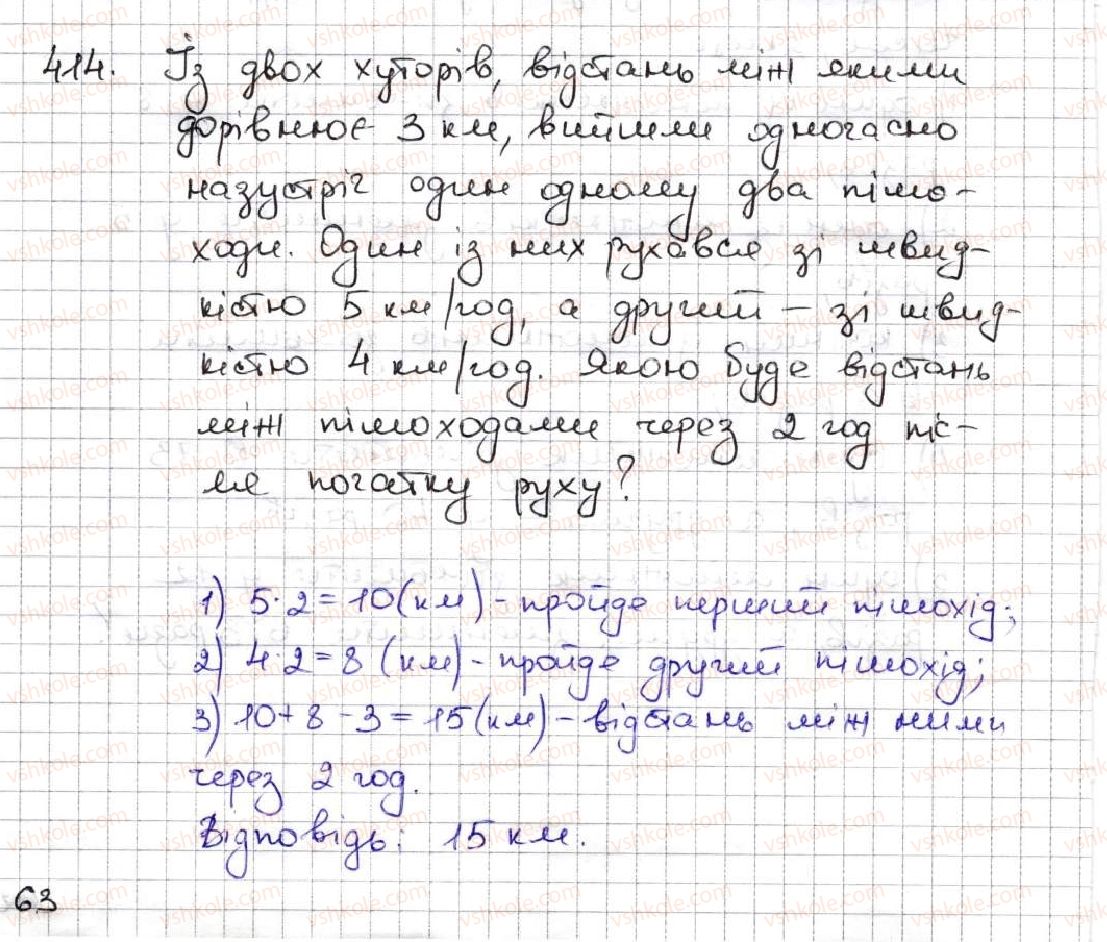 414. Із двох хуторів, відстань між якими
дорівнює 3 км, вийшли одночасно
назустріч один одному два пішо-
ходи. Один із них рухався зі швид-
кістю 5 км/год, а другий – зі швид-
кістю 4 км/год. Якою буде відстань
між пішоходами через 2 год піс-
ля початку руху?
1) 5·2=10(км) - пройде перший пішохід;
2) 4·2=8 (км) - пройде другий пішохід;
3) 10+8-3=15(км) - відстань між ними
через 2 год.
Відповідь: 15 км.
63